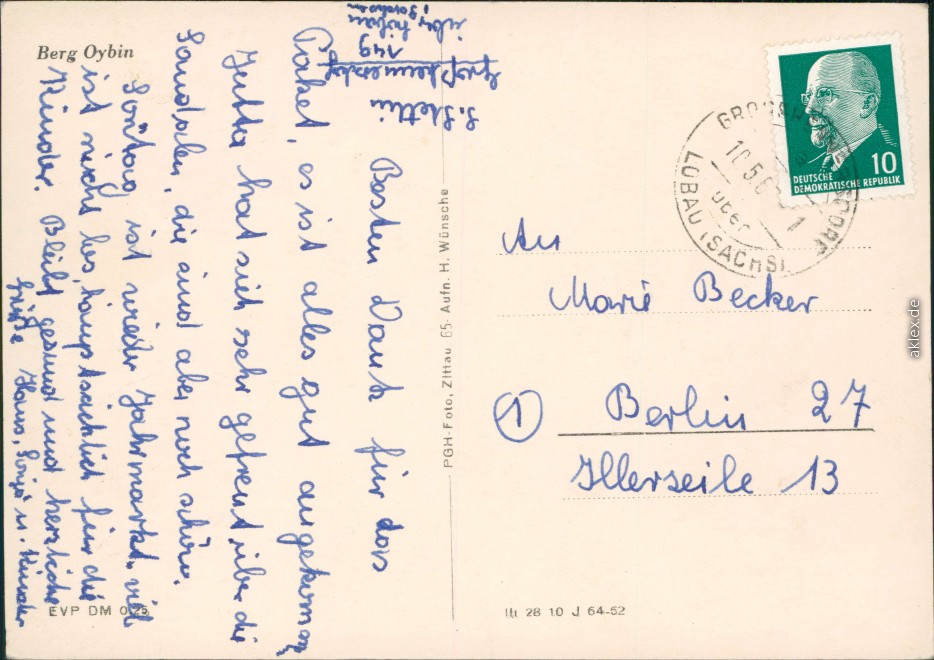 Berg Oybin
S. Stelli
Großhennersdorf
149
über Löbau
Besten Dank für das
Paket, es ist alles gut angekommen
Jutta hat sich sehr gefreut über die
Sandalen, die sind aber noch schön.
Sontag ist wieder Jahrmarkt, viel
ist nicht los, hauptsächlich für die
Kinder. Bleibt gesund und herzliche
Grüße Hans, Sonja u. Kinder
EVP DM 0,25
PGH-Foto, Zittau 65 Aufn. H. Wünsche
III 28 10 J 64-52
DEUTSCHE
DEMOKRATISCHE REPUBLIK
10
GROSSHENNERSDORF
über
LÖBAU (SACHS)
An
Marie Becker
1 Berlin 27
Illerzeile 13
aklex.de